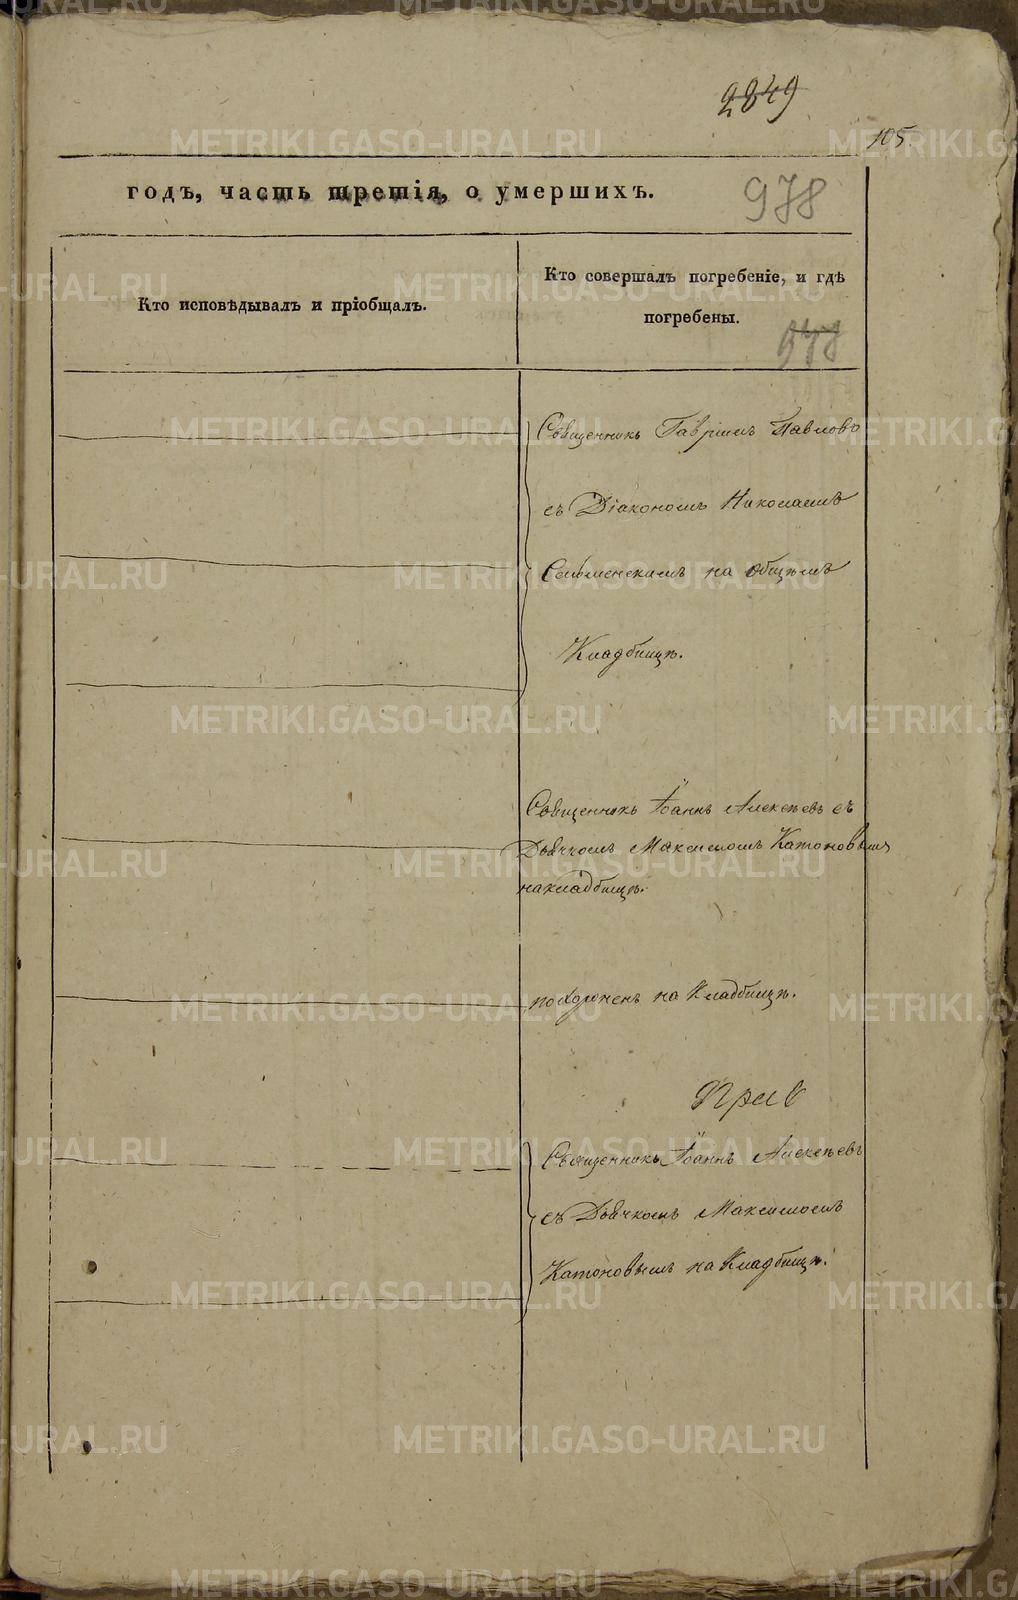 2849
105.
годъ, часть третія, о умершихъ.
978
Кто исповѣдывалъ и пріобщалъ.
Кто совершалъ погребеніе, и гдѣ
погребены.
978
Священникъ Гавріилъ Павловъ
съ Діакономъ Николаемъ
на общемъ
Кладбищѣ.
Священникъ Іоаннъ Алексѣевъ съ
Дьячкомъ Максимомъ Катоновымъ
на кладбищѣ.
похороненъ на Кладбищѣ.
Священникъ Іоаннъ Алексѣевъ
съ Дьячкомъ Максимомъ
Катоновымъ на Кладбищѣ.
METRIKI.GASO-URAL.RU